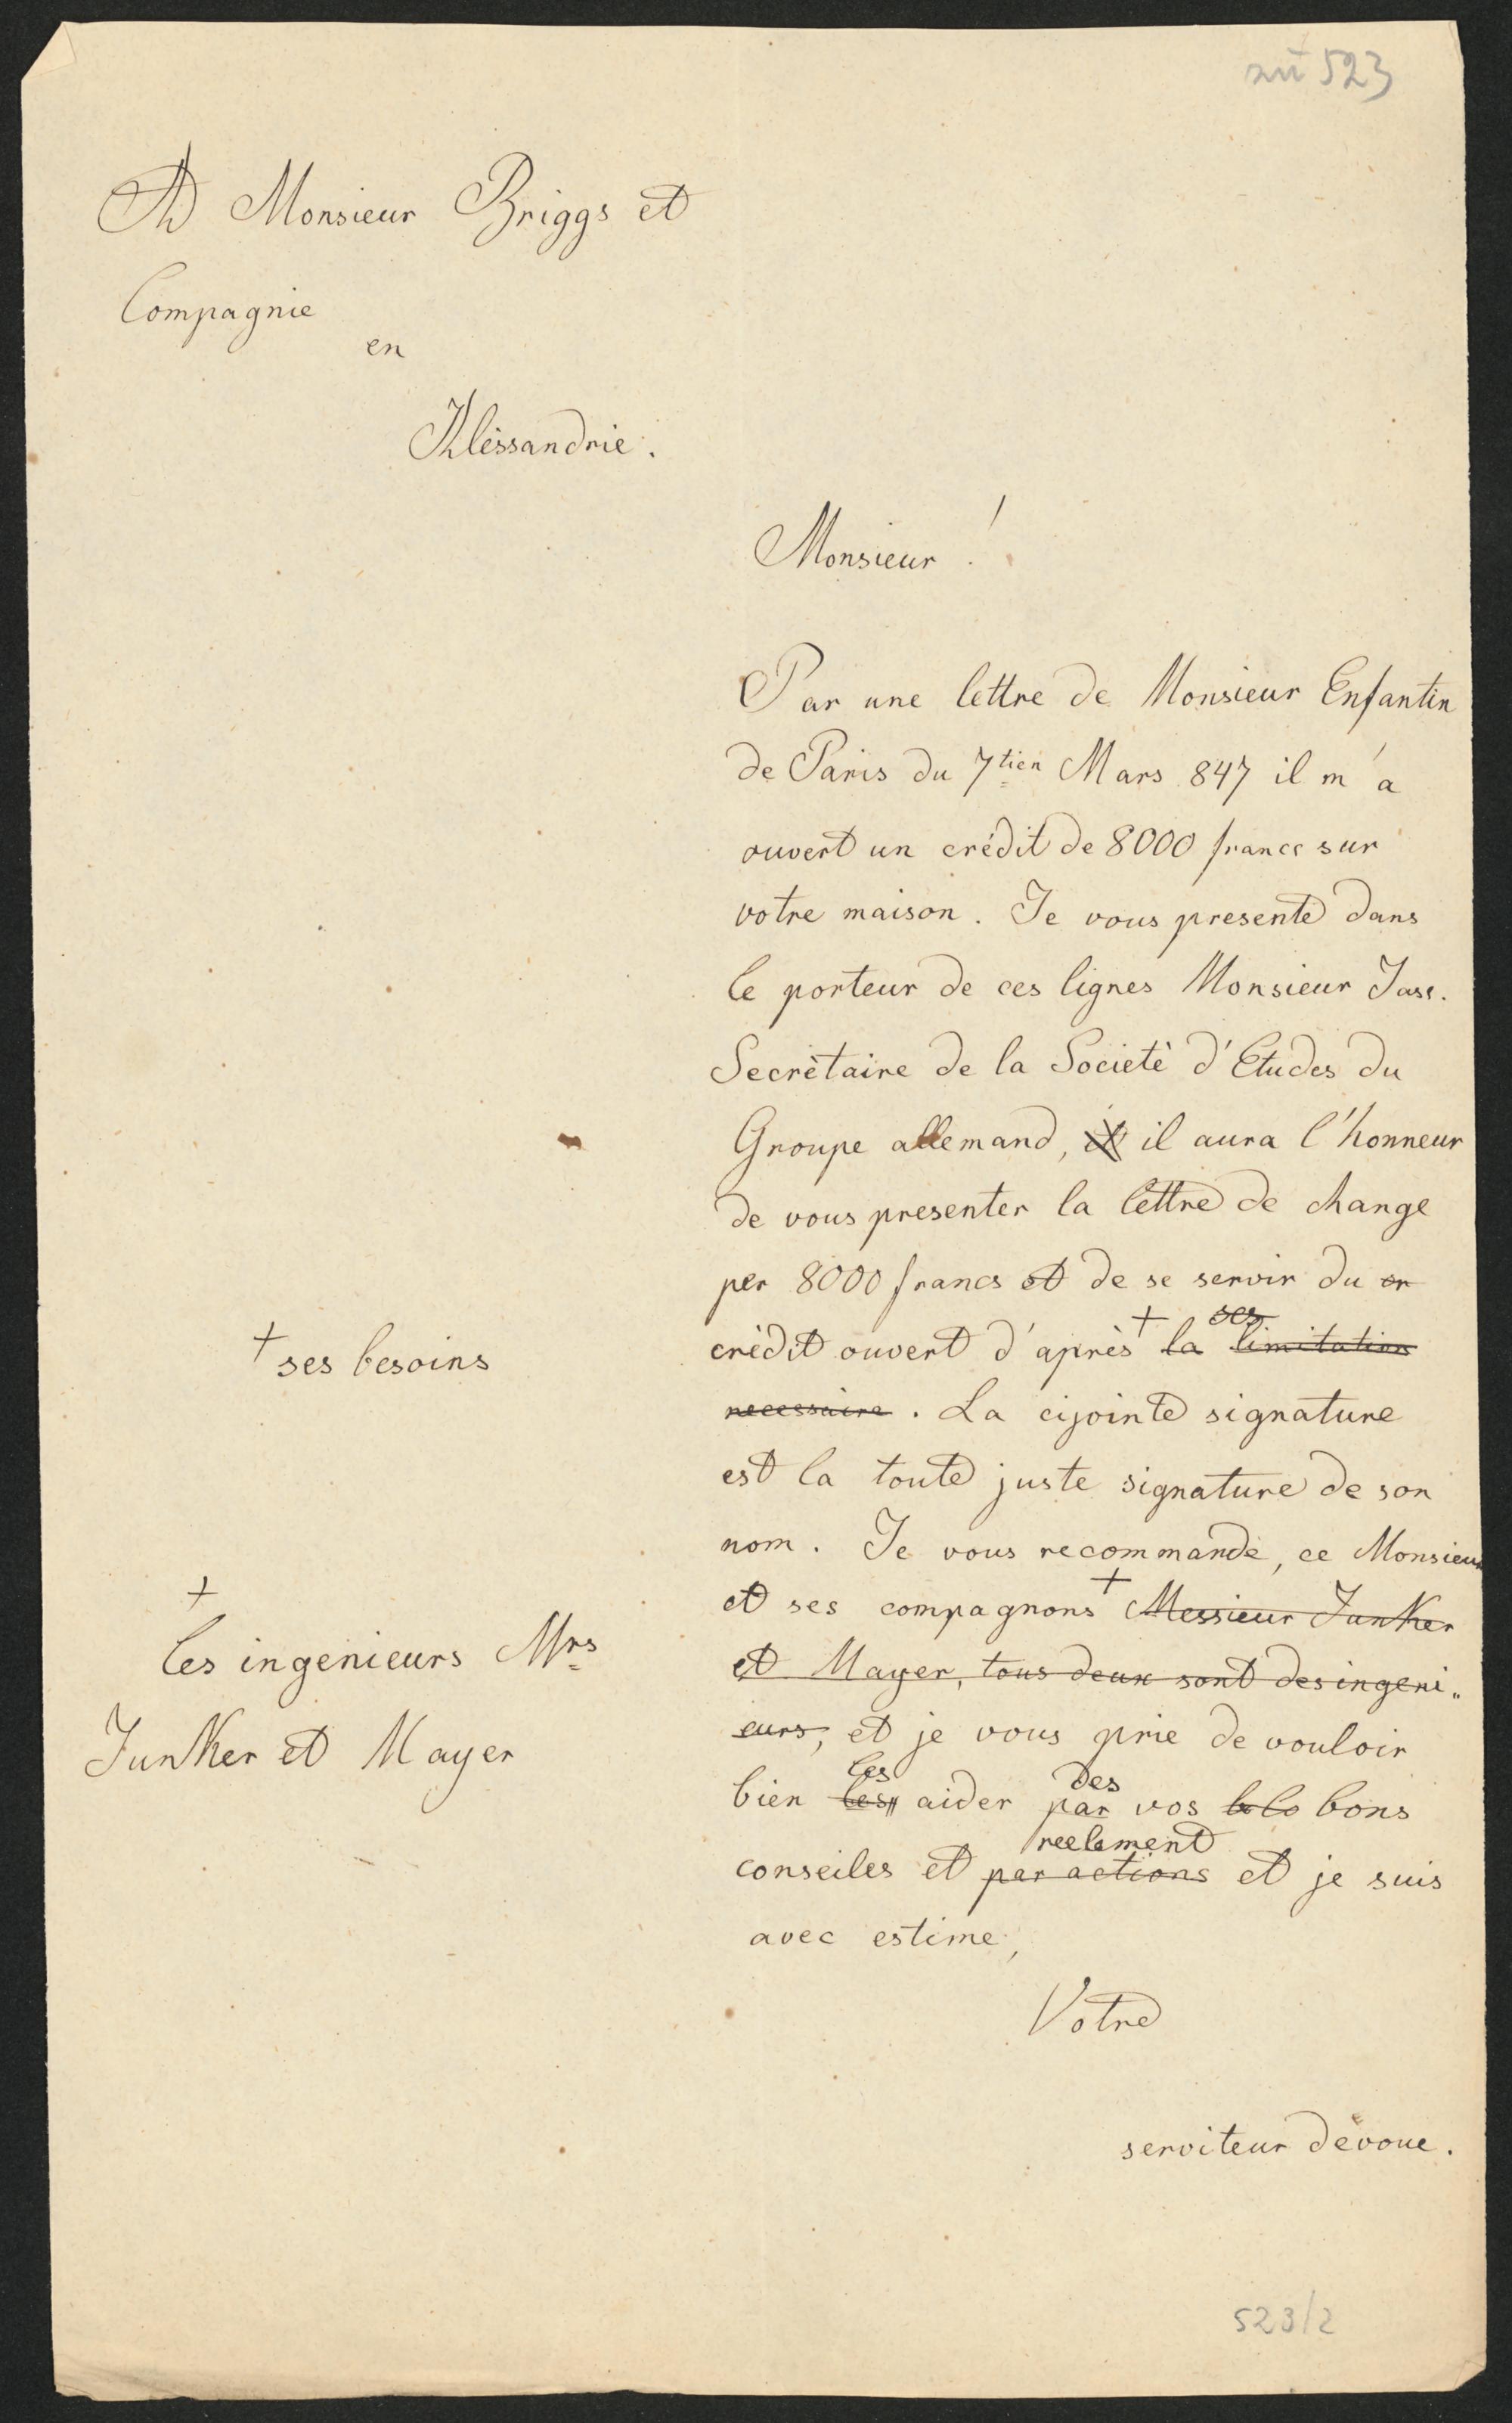 zu 523
A Monsieur Briggs et
Compagnie
en
Alèssandrie.
Monsieur!
Par une lettre de Monsieur Enfantin
de Paris du 7tien Mars 847 il m'a
ouvert un crédit de 8000 francs sur
votre maison. Je vous presente dans
le porteur de ces lignes Monsieur Jass.
Secrètaire de la Societè d'Etudes du
Groupe allemand, et il aura l'honneur
de vous presenter la lettre de change
per 8000 francs et de se servir du cr
+ ses
crèdit ouvert d'après la limitation
+ ses besoins
necessaire. La cijointe signature
est la toute juste signature de son
nom. Je vous recommande, ce Monsieur
et ses compagnons + Messieur Junker
+
les ingenieurs Mrs
Junker et Mayer
et Mayer, tous deux sont des ingeni„
eurs, et je vous prie de vouloir
les des
bien les aider par vos bons
reelement
conseiles et par actions et je suis
avec estime,
Votre
serviteur dèvoue.
523/2